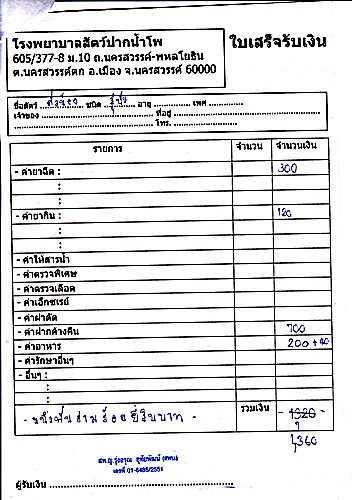 โรงพยาบาลสัตว์ปากน้ำโพ
605/377-8 ม.10 ถ.นครสวรรค์-พหลโยธิน
ต.นครสวรรค์ตก อ.เมือง จ.นครสวรรค์ 60000
ใบเสร็จรับเงิน
ชื่อสัตว์ ........ ชนิด ........ อายุ ........ เพศ ........
เจ้าของ ........ ที่อยู่ ........
........ โทร. ........
รายการ จำนวน จำนวนเงิน
- ค่ายาฉีด : 300
:
:
- ค่ายากิน : 120
:
:
- ค่าให้สารน้ำ
- ค่าตรวจพิเศษ
- ค่าตรวจเลือด
- ค่าเอ็กซเรย์
- ค่าผ่าตัด
- ค่าฝากค้างคืน 700
- ค่าอาหาร 200 + 40
- ค่ารักษาอื่นๆ
- อื่นๆ :
:
:
- หนึ่งพันสามร้อยยี่สิบบาท - รวมเงิน - 1320 -
1,360
สพ.ญ.รุ่งอรุณ
เลขที่ 01-6485/2551
ผู้รับเงิน ........